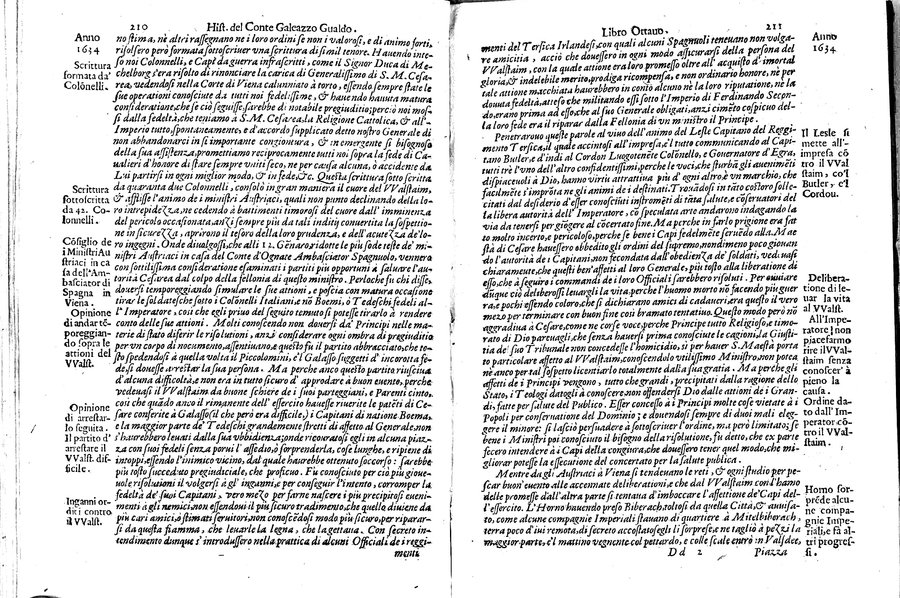 210 Hist. del Conte Galeazzo Gualdo.
Anno
1634
Scrittura
formata da'
Colõnelli.
Scrittura
sottoscritta
da 42. Co-
lonnelli.
Cõsiglio de
i Ministri Au
striaci in ca
sa dell'Am-
basciator di
Spagna in
Viena.
Opinione
di andar tẽ
poreggian-
do sopra le
attioni del
VValst.
Opinione
di arrestar-
lo seguita.
Il partito d'
arrestare il
VValst. dif-
ficile.
Inganni or-
diti contro
il VValst.
no stima, nè altri rassegnano ne i loro ordini se non i valorosi, e di animo forti,
risolsero però formata sottoscriuer vna scrittura di simil tenore. Hauendo inte-
so noi Colonnelli, e Capi da guerra infrascritti, come il Signor Duca di Me-
chelborg s'era risolto di rinonciare la carica di Generalissimo di S. M. Cesa-
rea, vedendosi nella Corte di Viena calunniato à torto, essendo sempre state le
sue operationi conosciute da tutti noi fedelissime, & hauendo hauuta matura
consideratione, che se ciò seguisse, sarebbe di notabile pregiudizio; perciò noi mos-
si dalla fedeltà, che teniamo à S. M. Cesarea, la Religione Cattolica, & all'-
Imperio tutto, spontaneamente, e d'accordo supplicato detto nostro Generale di
non abbandonarci in sì importante congiontura, & in emergente sì bisognoso
della sua assistenza, promettiamo reciprocamente tutti noi sopra la fede di Ca-
uallieri d'honore di star sempre vniti seco, ne per causa alcuna, ò accidente da
Lui partirsi in ogni miglior modo, & in fede, &c. Questa scrittura sottoscritta
da quaranta due Colonnelli, consolò in gran maniera il cuore del VValstaim,
& afflisse l'animo de i ministri Austriaci, quali non punto declinando della lo-
ro intrepidezza, ne cedendo à battimenti timorosi del cuore dall'imminenza
del pericolo accasionata, anzi sempre più da tali inditij conuertita la sospettione
ne in sicurezza, aprirono il tesoro della loro prudenza, e dell'acutezza de'lo-
ro ingegni. Onde diuolgossi, che alli 12. Genaro, ridotte le più sode teste de' mi-
nistri Austriaci in casa del Conte d'Ognate Ambasciator Spagnuolo, vennero
con sottilissima consideratione esaminati i partiti più opportuni à saluare l'au-
torità Cesarea dal colpo della fellonia di questo ministro. Perloche fù chi disse,
douersi temporeggiando simulare le sue attioni, e poscia con matura occasione
tirar le soldatesche sotto i Colõnelli Italiani, nõ Boemi, ò Tedeschi fedeli al-
l'Imperatore, così che egli priuo del seguito temuto si potesse tirarlo à rendere
conto delle sue attioni. Molti conoscendo non douersi da' Principi nelle mate-
rie di stato diferir le risolutioni, anzi considerare ogni ombra di pregiudizio
per vn corpo di nocumento, assentiuano, e questo fù il partito abbracciato, che to-
sto spedendosi à quella volta il Piccolomini, e'l Galasso suggetti d'incorotta fe-
de si douesse arrestar la sua persona. Ma perche anco questo partito riusciua
d'alcuna difficoltà, e non era in tutto sicuro d'approdare à buon euento, perche
vedeuasi il VValstaim da buone schiere de i suoi parteggiani, e Parenti cinto,
così che ancor quando il rimanente dell'essercito hauesse riuerite le patẽti di Ce-
sare conferite à Galasso (il che però era difficile,) i Capitani di natione Boema,
e la maggior parte de' Tedeschi grandemente stretti di affetto al Generale, non
s'haurebbero leuati dalla sua vbbidienza; onde ricouratosi egli in alcuna piaz-
za con suoi fedeli senza porui l'assedio, ò sorprenderla, cose lunghe, e ripiene di
intoppi, essendo l'inimico vicino, dal quale haurebbe ottenuto soccorso: sarebbe
più tosto successo pregiudiciale, che proficuo. Fù conosciuto per ciò più gioue-
uole risolutioni il volgersi à gl' inganni, e per conseguir l'intento, corromper la
fedeltà de' suoi Capitani, vero mezo per farne nascere i più precipitosi eueni-
menti à gl'nemici, non essendoui il più sicuro tradimento, che quello diuiene da
più cari amici, ò stimati seruitori, non conoscẽdosi modo più sicuro, per riparar-
si da questa fiamma, che leuarle la legna, che la gettaua. Con secreto in-
tendimento dunque s'introdussero nella prattica di alcuni Officiali de i reggi-
menti
Libro Ottauo. 211
menti del Tersica Irlandesi, con quali alcuni Spagnuoli teneuano non volga-
re amicitia, acciò che douessero in ogni modo assicurarsi della persona del
VValstaim, con la quale attione era loro promesso oltre all'acquisto d'imortal
gloria, & indelebile merito, prodiga ricompensa, e non ordinario honore, nè per
tale attione macchiata haurebbero in conto alcuno nè la loro riputatione, ne la
douuta fedeltà, atteso che militando essi sotto l'Imperio di Ferdinando Secon-
do, erano prima ad esso, che al suo Generale obligati, anzi cimẽto cospicuo del-
la loro fede era il riparar dalla Fellonia di vn ministro il Principe.
Penetrarouo queste parole al viuo dell'animo del Lesle Capitano del Reggi-
mento Tersica, il quale accintosi all'impresa, e'l tutto communicato al Capi-
tano Butler, e'd indi al Cordon Luogotenẽte Colõnello, e Gouernatore d'Egra,
tutti trè l'vno dell'altro confidentissimi, perche i vtij, che sturbã gli auenimẽti
dispiaceuoli à Dio, hanno virtù attrattiua più d'ogni altro, e vn marchio, che
facilmẽte s'imprõta ne gli animi de i destinati. Trouãdosi in tãto costoro solle-
citati dal desiderio d'esser conosciuti instromẽti di tãta salute, e cõseruatori del
la libera autorità dell' Imperatore, cõ speculata arte andarono indagando la
via da tenersi per giõgere al cõcertato fine. Ma perche in farlo prigione era fat
to molto incerto, e pericoloso, perche se bene i Capi fedelmẽte seruẽdo alla Mae
stà di Cesare hauessero obbedito gli ordini del supremo, nondimeno poco giouan
do l'autorità de i Capitani, non fecondata dall'obedienza de' soldati, vedeuasi
chiaramente, che questi ben'affetti al loro Generale, più tosto alla libertà di esso,
che à seguire i commandi de i loro Officiali sarebbero risoluti. Per euitare
dũque ciò deliberossi leuargli la vita, perche l'huomo morto nõ facendo più guer
ra, e pochi essendo coloro, che si dichiarano amici di cadaueri, era questo il vero
mezo per terminare con buon fine così bramato tentatiuo. Questo modo però nõ
aggradiua à Cesare, come ne corse voce, perche Principe tutto Religioso, e timo-
rato di Dio pareuagli, che senza hauersi prima conosciute le cagioni, la Giusti-
tia de' suoi Tribunale non receuesse l'homicidio, sì per hauer S. Maestà porta
to particolare affetto al VValstaim, conoscendolo vtilissimo Ministro, non potea
nè anco per tal sospetto licentiarlo totalmente dalla sua gratia. Ma perche gli
affetti de i Principi vengono, tutto che grandi, precipitati dalla ragione dello
Stato, i Teologi datogli à conoscere, non offendersi Dio dalle attioni de i Gran-
di, fatte per salute del Publico. Esser concesso à i Principi molte cose vietate à i
Popoli per conseruatione del Dominio; e douendosi sempre di duoi mali eleg-
gere il minore: si lasciò persuadere à sottoscriuer l'ordine, ma però limitato, se
bene i Ministri poi conosciuto il bisogno della risolutione, fù detto, che ex parte
fecero intendere à i Capi della congiura, che douessero tener quel modo, che mi-
gliorar potesse la essecutione del concertato per la salute publica.
Mentre da gli Austriaci à Viena si tendeuano le reti, & ogni studio per pe-
scar buon'euento alle accennate deliberationi, e che dal VValstaim con l'hamo
delle promesse dall'altra parte si tentaua d'imboccare l'affettione de'Capi del-
l'essercito. L'Horno hauendo preso Biberach, toltosi da quella Città, & auuisa-
to, come alcune compagnie Imperiali stauano di quartiere à Mitelbiberach,
terra poco d'iui remota, di secreto accostatosegli gli sorprese, ne tagliò à pezzi la
maggior parte, e'l mattino vegnente col pettardo, e colle scale entrò in Valsdee,
Dd 2 Piazza
Anno
1634.
Il Lesle si
mette all'-
impresa cõ
tro il VVal
staim, co'l
Butler, e'l
Cordou.
Delibera-
tione di le-
uar la vita
al VVal-
staim.
All'Im-
peratore nõ
piace farmo
rire il VVal-
staim senza
conoscer à
pieno la
causa.
Ordine da-
to dall'Im-
perator cõ-
tro il VVal-
staim.
Horno sor-
prẽde alcu-
ne compa-
gnie Impe-
riali, e sà al-
tri progres-
si.